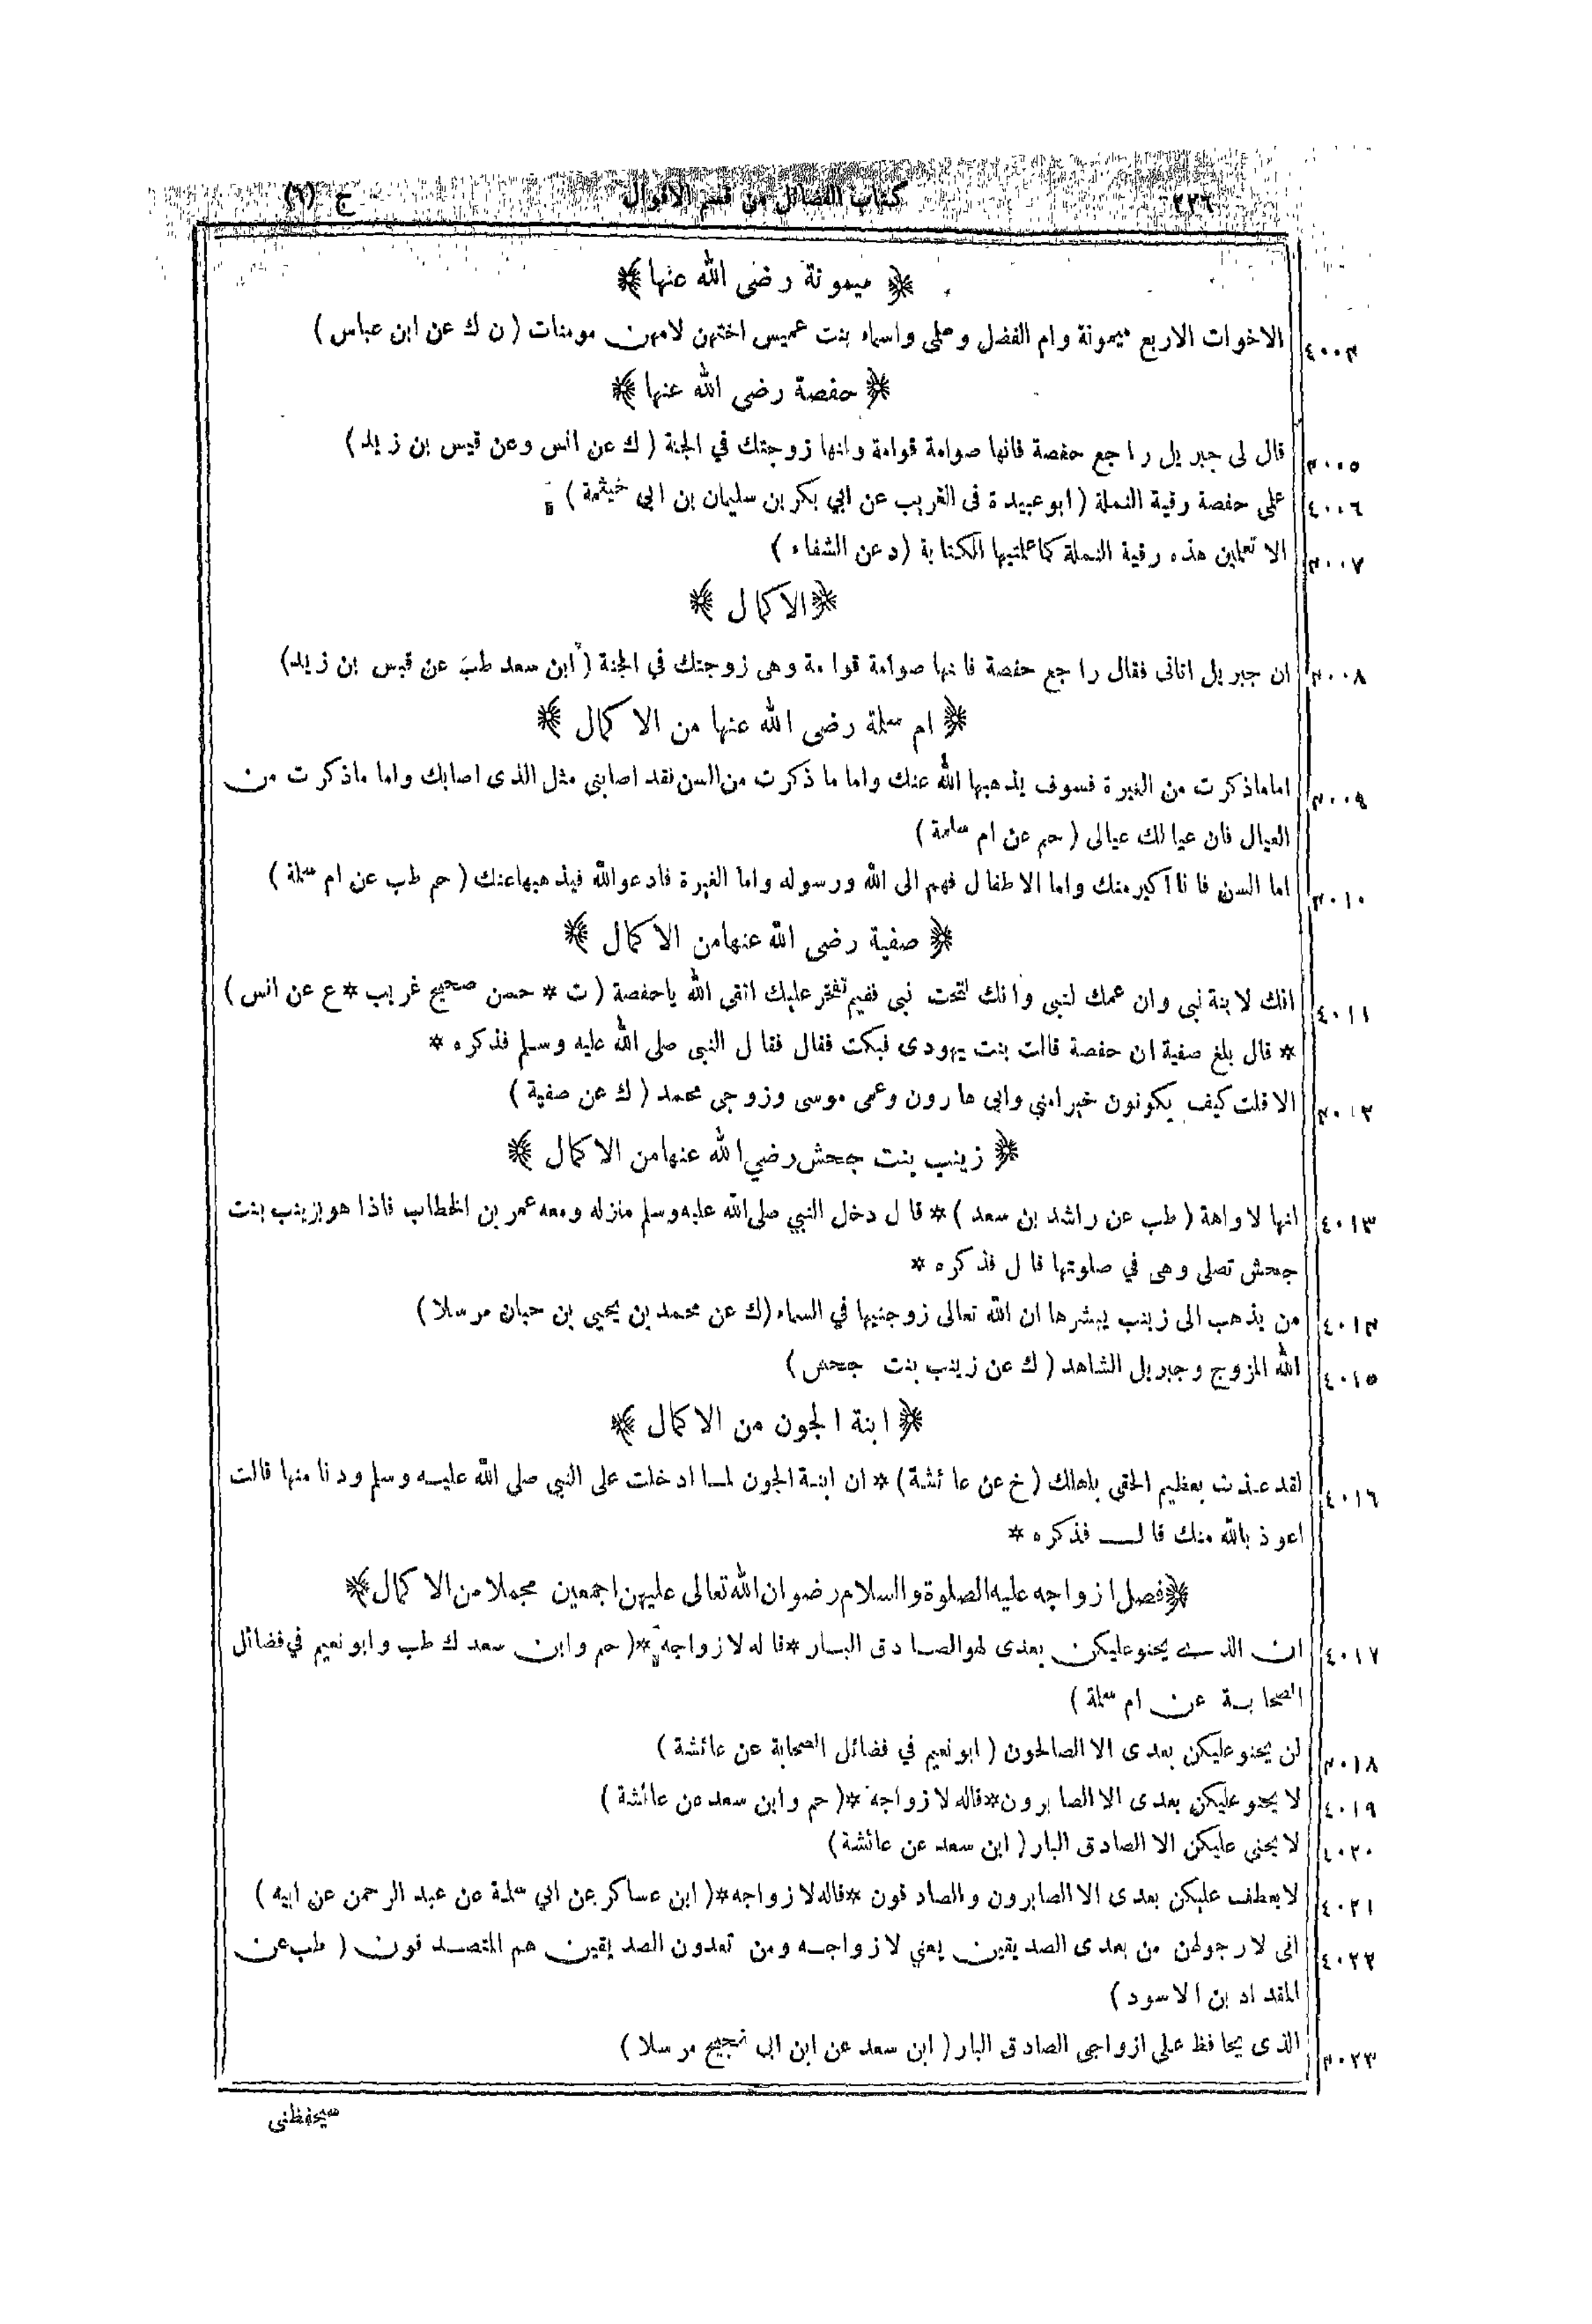 ٢٢٦ كتاب الفضائل من قسم الاقوال ج (٦)
﴿ ميمونة رضى الله عنها ﴾
٤٠٠٤ الاخوات الاربع ميمونة وام الفضل وسلمى واسماء بنت عميس اختهن لامهن مومنات ( ن ك عن ابن عباس )
﴿ حفصة رضى الله عنها ﴾
٤٠٠٥ قال لى جبريل راجع حفصة فانها صوامة قوامة وانها زوجتك في الجنة ( ك عن انس وعن قيس بن زيد )
٤٠٠٦ على حفصة رقية النملة ( ابو عبيدة فى الغريب عن ابي بكر بن سليمان بن ابى خيثمة )
٤٠٠٧ الا تعلمين هذه رقية النملة كما علمتيها الكتابة ( د عن الشفاء )
﴿ الاكمال ﴾
٤٠٠٨ ان جبريل اتانى فقال راجع حفصة فانها صوامة قوامة وهى زوجتك في الجنة ( ابن سعد طب عن قيس بن زيد )
﴿ ام سلمة رضى الله عنها من الاكمال ﴾
٤٠٠٩ اما ماذكرت من الغيرة فسوف يذهبها الله عنك واما ما ذكرت من السن فقد اصابنى مثل الذى اصابك واما ماذكرت من
العيال فان عيالك عيالى ( حم عن ام سلمة )
٤٠١٠ اما السن فانا اكبر منك واما الاطفال فهم الى الله ورسوله واما الغيرة فادعو الله فيذهبها عنك ( حم طب عن ام سلمة )
﴿ صفية رضى الله عنها من الاكمال ﴾
٤٠١١ انك لابنة نبى وان عمك لنبى وانك لتحت نبى ففيم تفخر عليك اتقى الله ياحفصة ( ت * حسن صحيح غريب * ع عن انس )
* قال بلغ صفية ان حفصة قالت بنت يهودى فبكت فقال فقال النبى صلى الله عليه وسلم فذكره *
٤٠١٢ الا قلت كيف يكونون خيرا منى وابى هارون وعمى موسى وزوجى محمد ( ك عن صفية )
﴿ زينب بنت جحش رضي الله عنها من الاكمال ﴾
٤٠١٣ انها لاواهة ( طب عن راشد بن سعد ) * قال دخل النبي صلى الله عليه وسلم منزله ومعه عمر بن الخطاب فاذا هو بزينب بنت
جحش تصلى وهى في صلوتها قال فذكره *
٤٠١٤ من يذهب الى زينب يبشرها ان الله تعالى زوجنيها في السماء ( ك عن محمد بن يحيى بن حبان مرسلا )
٤٠١٥ الله المزوج وجبريل الشاهد ( ك عن زينب بنت جحش )
﴿ ابنة الجون من الاكمال ﴾
٤٠١٦ لقد عذت بعظيم الحقى باهلك ( خ عن عائشة ) * ان ابنة الجون لما ادخلت على النبي صلى الله عليه وسلم ودنا منها قالت
اعوذ بالله منك قال فذكره *
﴿ فصل ازواجه عليه الصلوة والسلام رضوان الله تعالى عليهن اجمعين مجملا من الاكمال ﴾
٤٠١٧ ان الذى يحنو عليكن بعدى لهو الصادق البار * قاله لازواجه * ( حم وابن سعد ك طب وابو نعيم في فضائل
الصحابة عن ام سلمة )
٤٠١٨ لن يحنو عليكن بعدى الا الصالحون ( ابو نعيم في فضائل الصحابة عن عائشة )
٤٠١٩ لا يحنو عليكن بعدى الا الصابرون * قاله لازواجه * ( حم وابن سعد عن عائشة )
٤٠٢٠ لا يحنى عليكن الا الصادق البار ( ابن سعد عن عائشة )
٤٠٢١ لا يعطف عليكن بعدى الا الصابرون والصادقون * قاله لازواجه * ( ابن عساكر عن ابي سلمة عن عبد الرحمن عن ابيه )
٤٠٢٢ انى لارجولهن من بعدى الصديقين يعني لازواجه ومن تعدون الصديقين هم المتصدقون ( طب عن
المقداد بن الاسود )
٤٠٢٣ الذى يحافظ على ازواجى الصادق البار ( ابن سعد عن ابن ابى نجيح مرسلا )
سيحفظنى